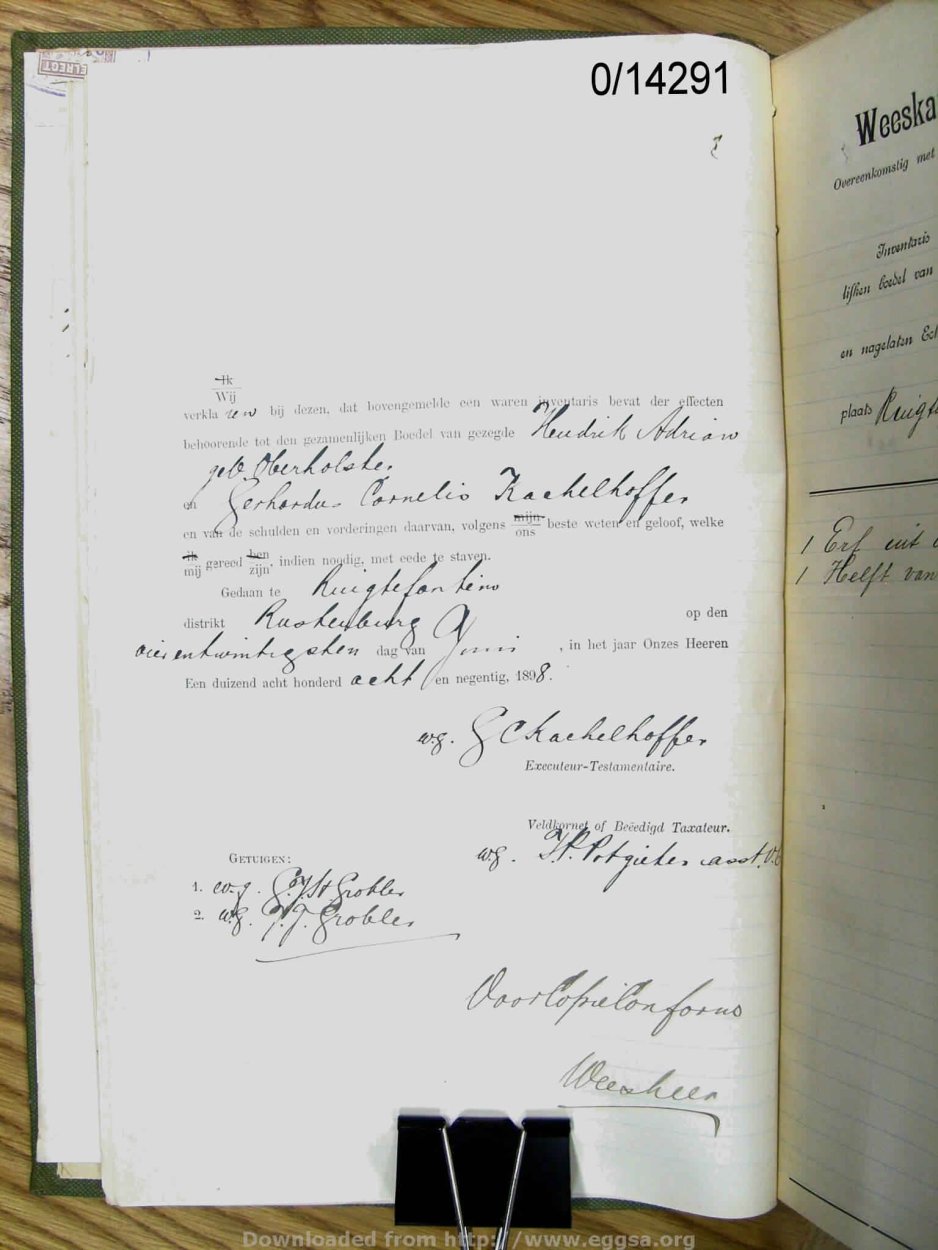 0/14291
ELREGT
Ik
Wij
verkla ren bij dezen, dat bovengemelde een waren inventaris bevat der effecten
behoorende tot den gezamenlijken Boedel van gezegde Hendrik Adrian
geb. Oberholster
en Gerhardus Cornelis Kachelhoffer
en van de schulden en vorderingen daarvan, volgens mijn ons beste weten en geloof, welke
ik mij gereed ben zijn, indien noodig, met eede te staven.
Gedaan te Ruigtefontein
distrikt Rustenburg op den
vier en twintigsten dag van Juni , in het jaar Onzes Heeren
Een duizend acht honderd acht en negentig, 1898.
w.g. G C Kachelhoffer
Executeur-Testamentaire.
Veldkornet of Beëedigd Taxateur.
w.g. Potgieter asst. V.C
GETUIGEN:
1. w.g. Grobler
2. w.g. Grobler
Voor Copie Conform
Weesheer
Weeska
Overeenkomstig met
Inventaris
lijken boedel van
en nagelaten Ech
plaats Ruigt
1 Erf uit
1 Helft van
Downloaded from http://www.eggsa.org